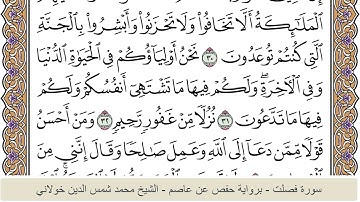 ٱلْمَلَٰٓئِكَةُ أَلَّا تَخَافُوا۟ وَلَا تَحْزَنُوا۟ وَأَبْشِرُوا۟ بِٱلْجَنَّةِ
ٱلَّتِى كُنتُمْ تُوعَدُونَ ٣٠ نَحْنُ أَوْلِيَآؤُكُمْ فِى ٱلْحَيَوٰةِ ٱلدُّنْيَا
وَفِى ٱلْءَاخِرَةِ ۖ وَلَكُمْ فِيهَا مَا تَشْتَهِىٓ أَنفُسُكُمْ وَلَكُمْ
فِيهَا مَا تَدَّعُونَ ٣١ نُزُلًا مِّنْ غَفُورٍ رَّحِيمٍ ٣٢ وَمَنْ أَحْسَنُ
قَوْلًا مِّمَّن دَعَآ إِلَى ٱللَّهِ وَعَمِلَ صَٰلِحًا وَقَالَ إِنَّنِى
سورة فصلت - برواية حفص عن عاصم - الشيخ محمد شمس الدين خولاني